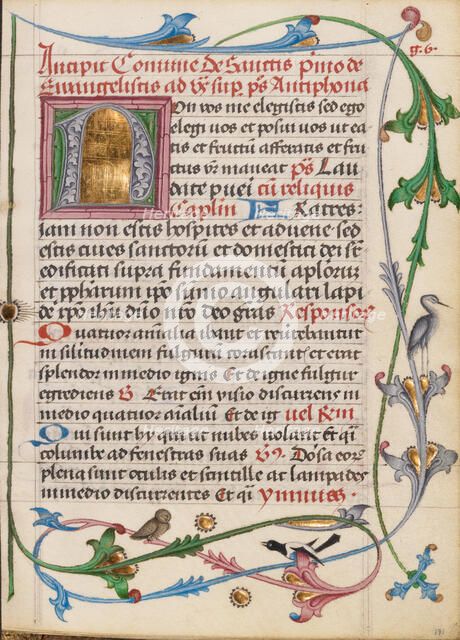 g. 6.
Incipit Comune De Sanctis Primo de
Ewangelistis ad vs sup ps Antiphona
Non vos me elegistis sed ego
elegi vos et posui vos ut ea
tis et fructu afferatis et fru
ctus vr maneat ps Lau
date pueri cu reliquis
Caplm Fratres
iam non estis hospites et advene sed
estis cives sanctoru et domestici dei st
edificati supra fundamentu aploru
et ppharum ipo sumo angulari lapi
de xpo ihu dno nro deo gras Responsor
Quatuor aialia ibant et revertebantur
in silitudinem fulguris coruscantis et erat
splendor in medio ignis Et de igne fulgur
egrediens V Erat em visio discurrens in
medio quatuor aialiu Et de ig vel Rm
Qui sunt hy qui ut nubes volant et qi
columbe ad fenestras suas V Dorsa eor
plena sunt oculis et scintille ac lampades
in medio discurrentes Et qi Ympnus